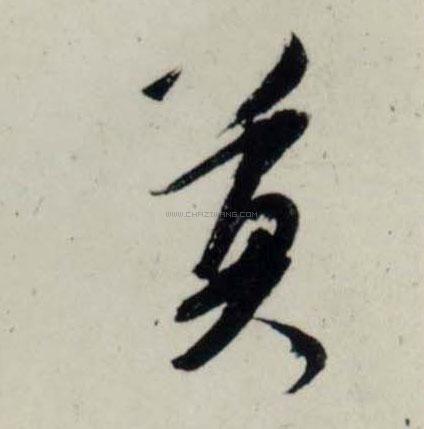 莫
WWW.CHAZIWANG.COM